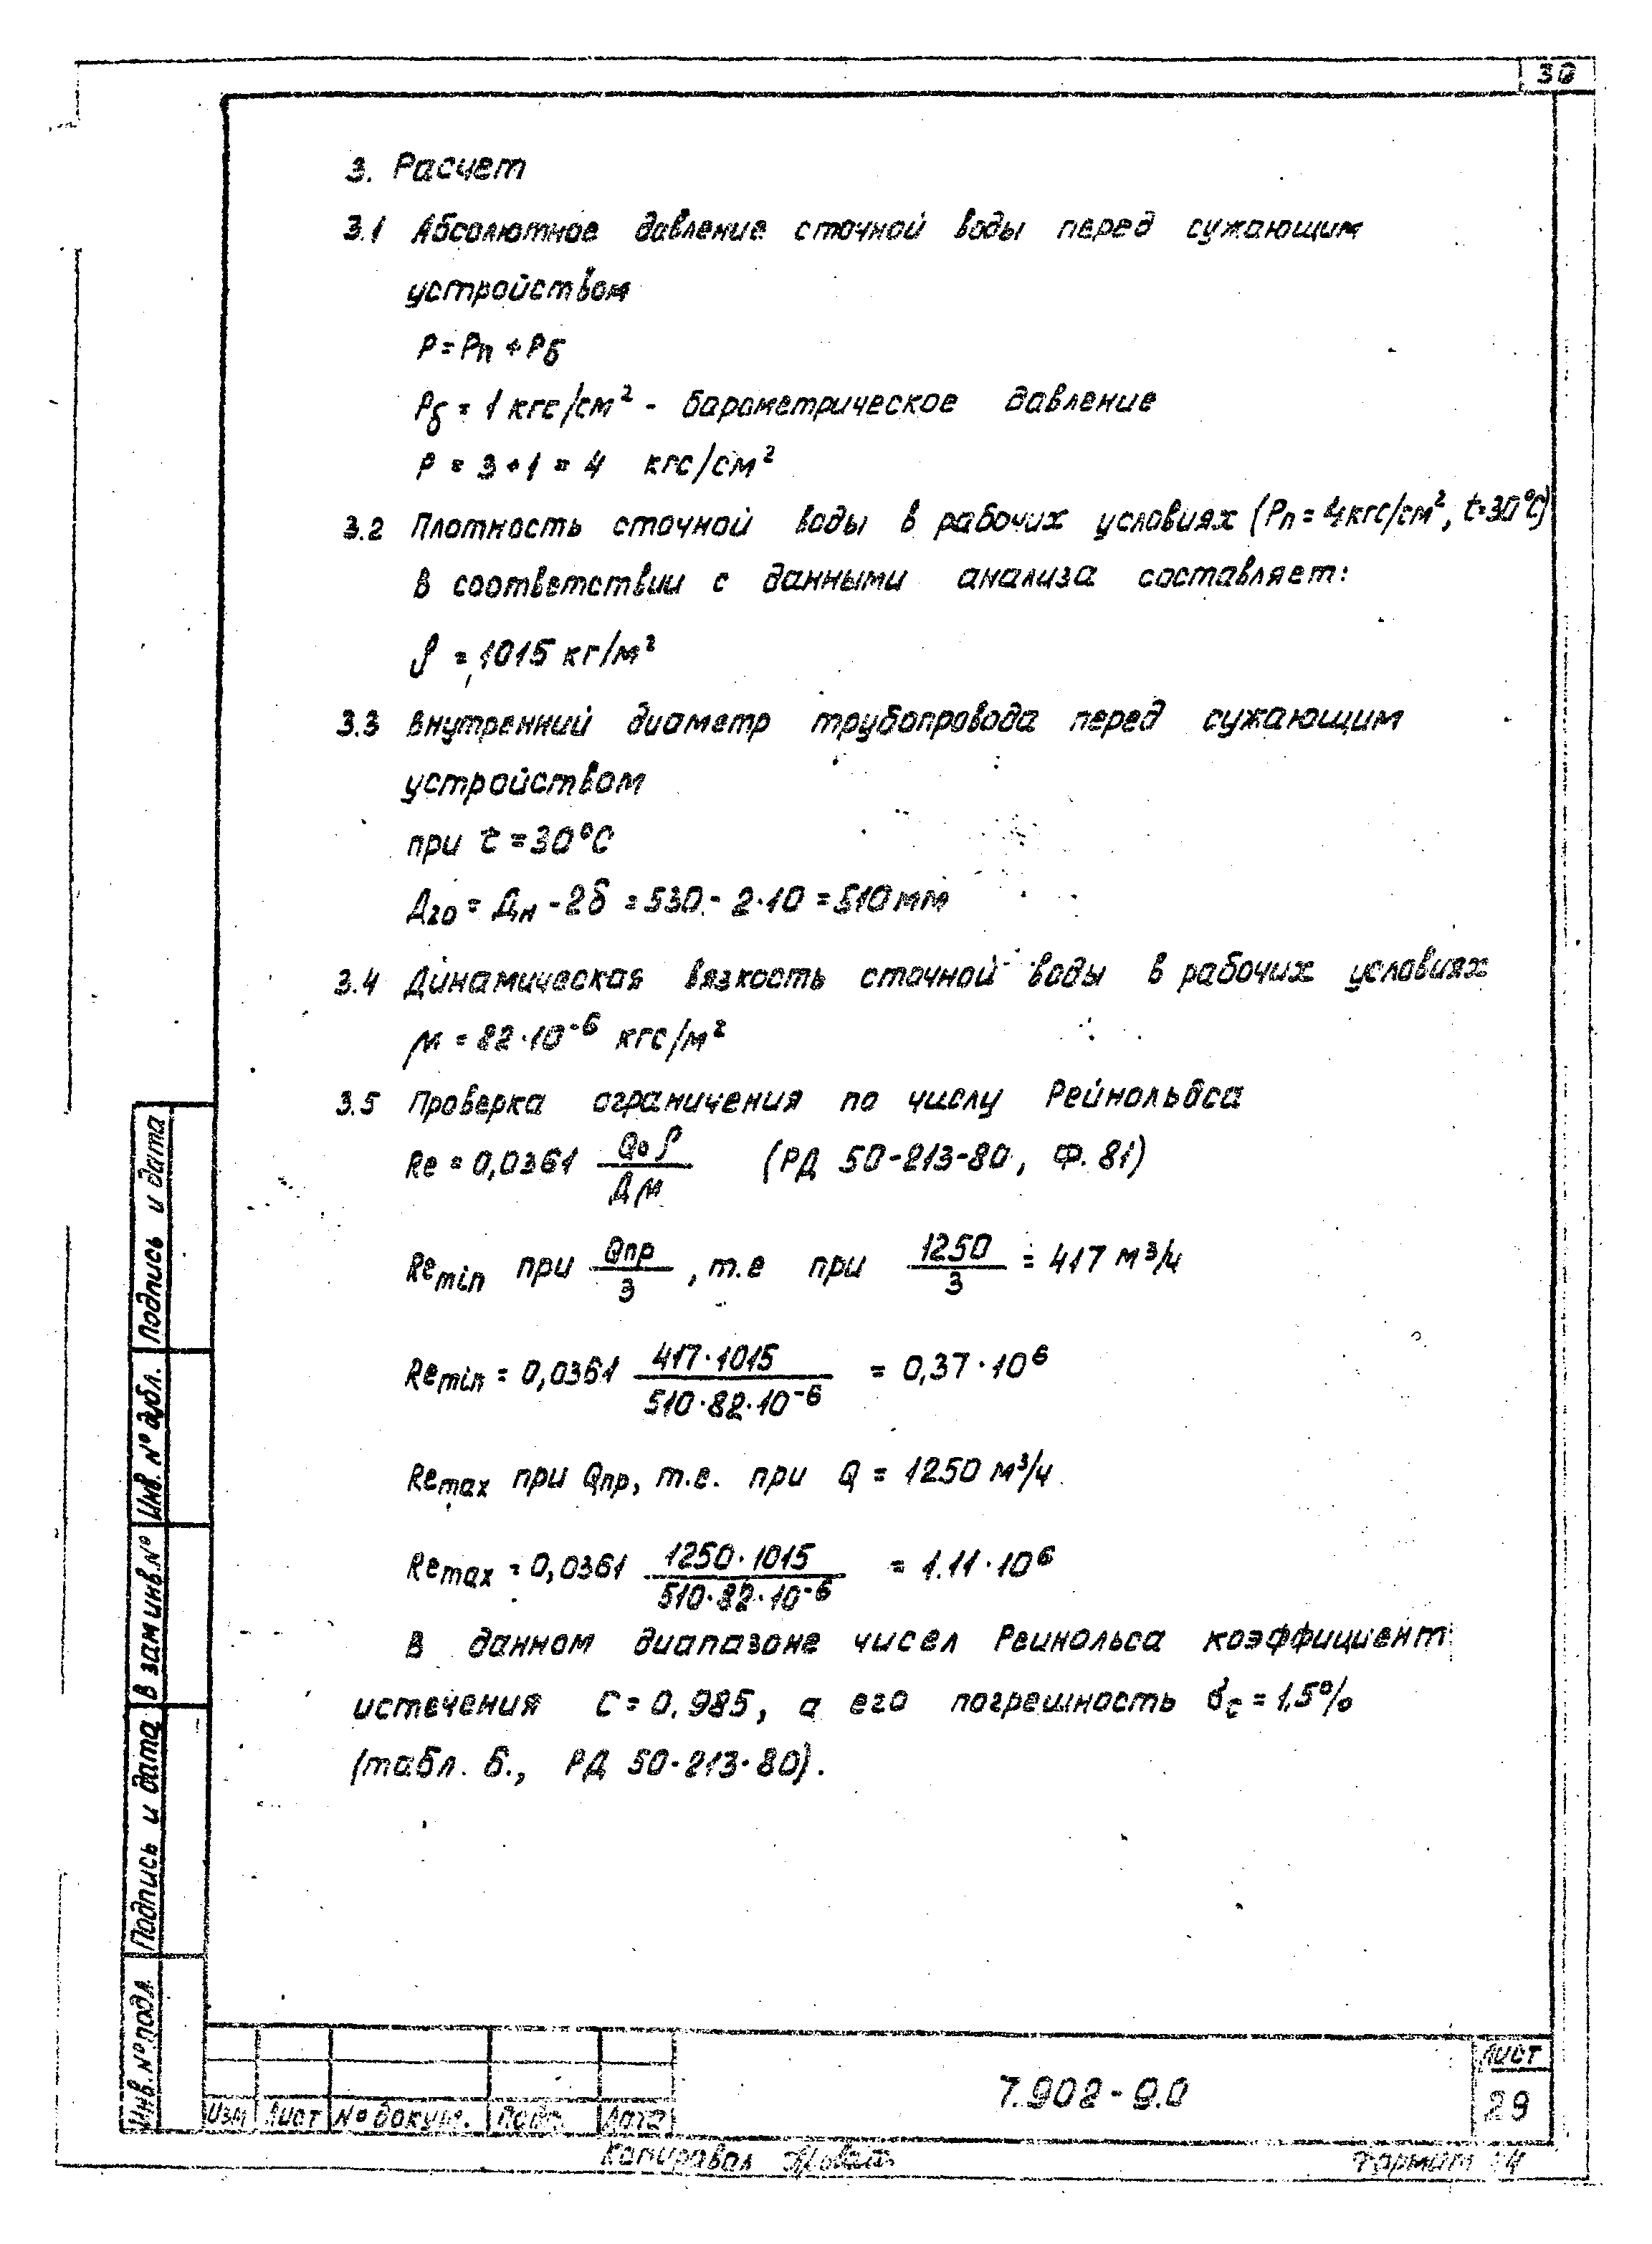 30
3. Расчет
3.1 Абсолютное давление сточной воды перед сужающим
устройством
P = Pп + Pб
Pб = 1 кгс/см² - барометрическое давление
P = 3+1 = 4 кгс/см²
3.2 Плотность сточной воды в рабочих условиях (Pп = 4кгс/см², t=30°C)
в соответствии с данными анализа составляет:
ρ = 1015 кг/м²
3.3 Внутренний диаметр трубопровода перед сужающим
устройством
при t = 30°C
Д20 = Дн - 2δ = 530 - 2·10 = 510 мм
3.4 Динамическая вязкость сточной воды в рабочих условиях
μ = 82·10⁻⁶ кгс/м²
3.5 Проверка ограничения по числу Рейнольдса
Re = 0,0361 Qоρ / Дμ (РД 50-213-80, Ф. 81)
Remin при Qпр / 3, т.е при 1250 / 3 = 417 м³/ч
Remin = 0,0361 417·1015 / 510·82·10⁻⁶ = 0,37·10⁶
Remax при Qпр, т.е. при Q = 1250 м³/ч.
Remax = 0,0361 1250·1015 / 510·82·10⁻⁶ = 1.11·10⁶
В данном диапазоне чисел Реинольса коэффициент
истечения C = 0.985, а его погрешность σc = 1,5%
(табл. 6., РД 50-213-80).
Подпись и дата
Инв. № дубл.
Взам инв. №
Подпись и дата
Инв. № подл
Изм Лист № докум. Подп. Дата
7.902-9.0
Лист
29
Копировал
Формат 4